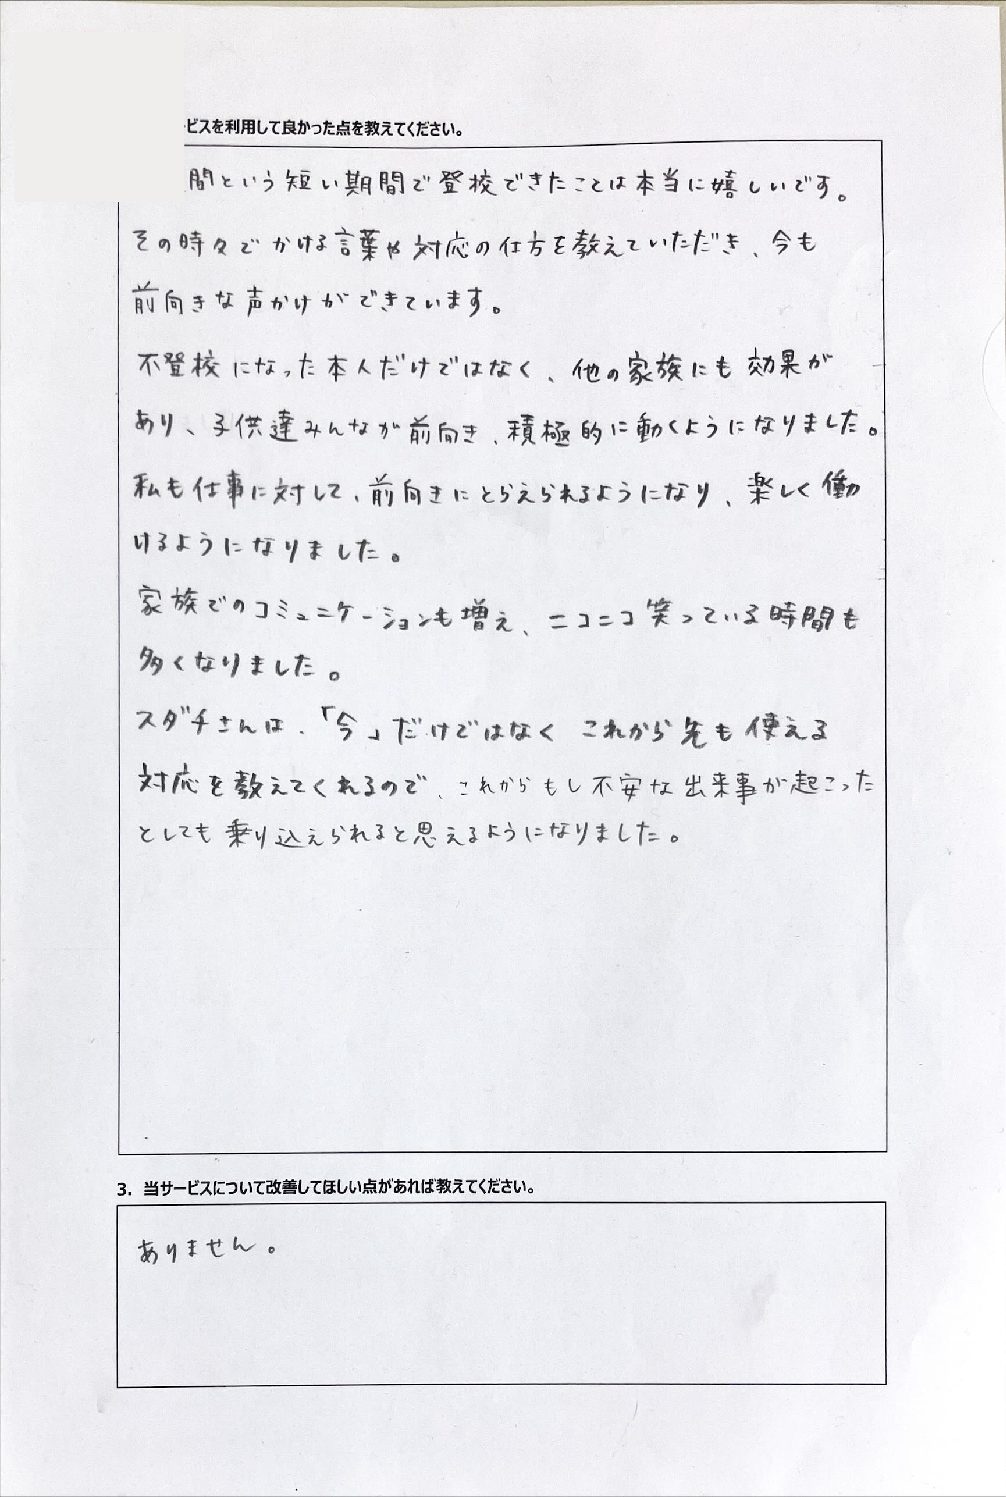 ービスを利用して良かった点を教えてください。
間という短い期間で登校できたことは本当に嬉しいです。
その時々でかける言葉や対応の仕方を教えていただき、今も
前向きな声かけができています。
不登校になった本人だけではなく、他の家族にも効果が
あり、子供達みんなが前向き、積極的に動くようになりました。
私も仕事に対して、前向きにとらえられるようになり、楽しく働
けるようになりました。
家族でのコミュニケーションも増え、ニコニコ笑っている時間も
多くなりました。
スダチさんは、「今」だけではなくこれから先も使える
対応を教えてくれるので、これからもし不安な出来事が起こった
としても乗り込えられると思えるようになりました。
3. 当サービスについて改善してほしい点があれば教えてください。
ありません。